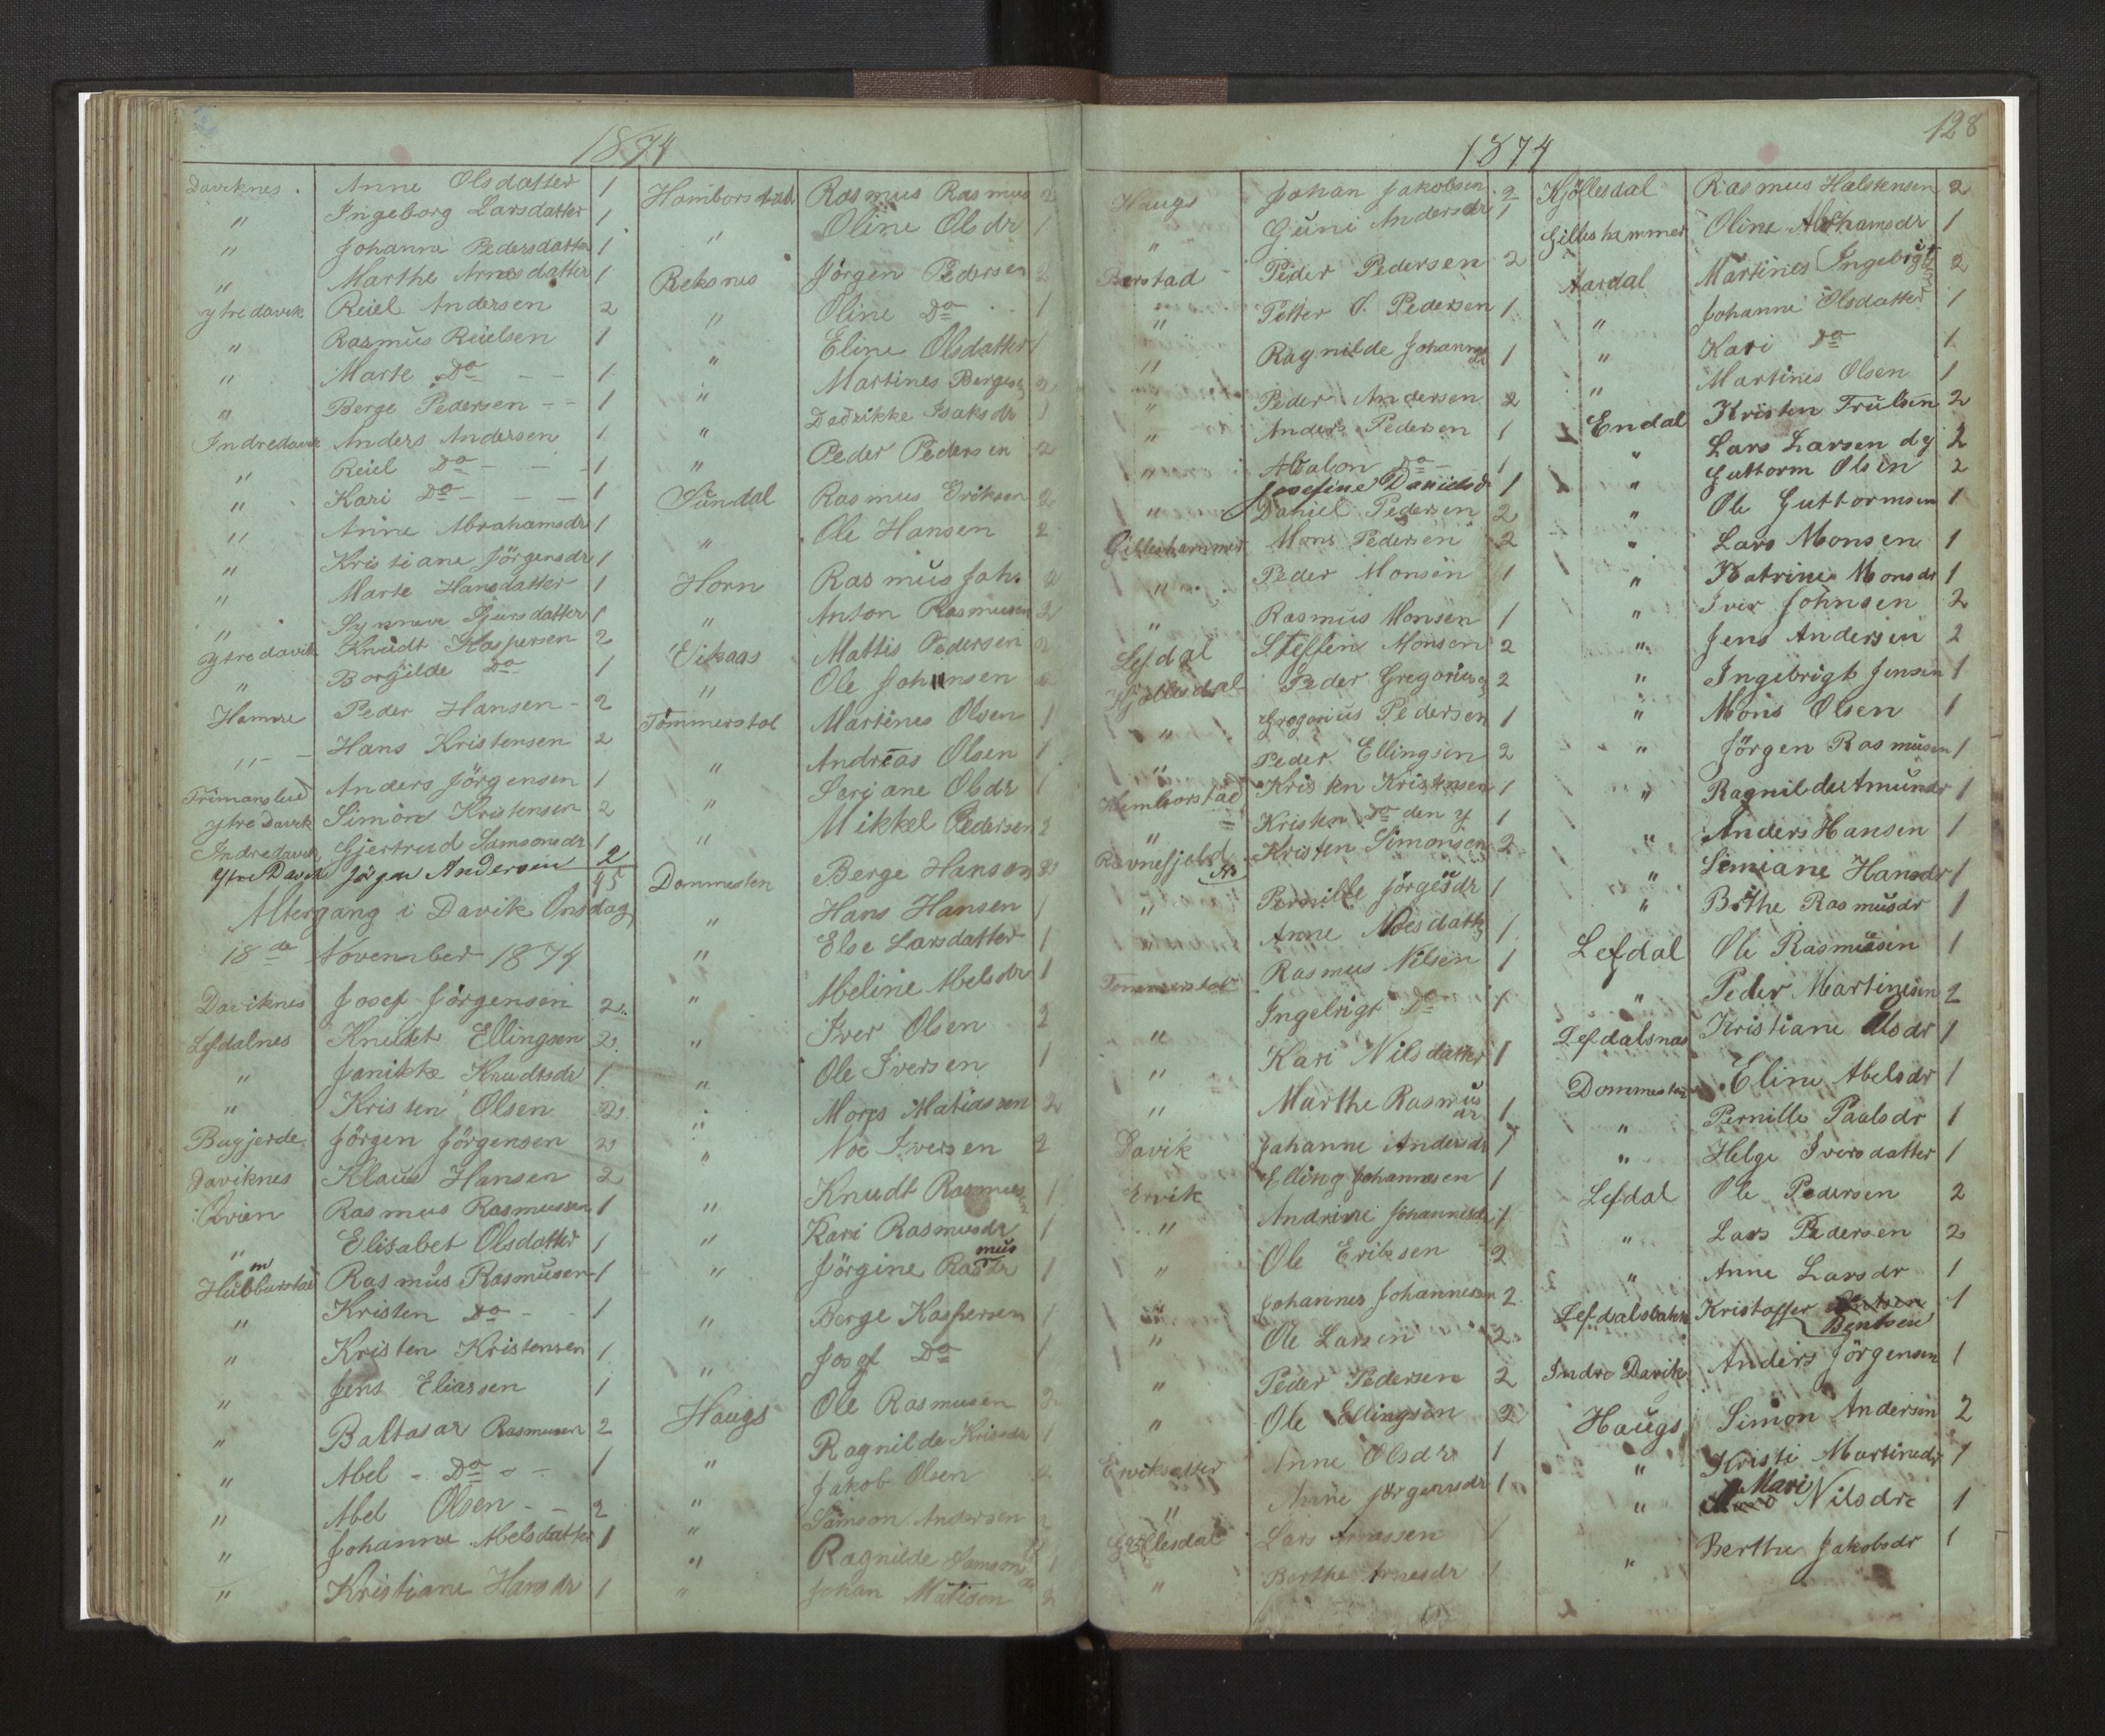 1874
Daviknes Anne Olsdatter 1
" Ingeborg Larsdatter 1
" Johanne Pedersdatter 1
" Marthe Arnesdatter 1
ytre davik Reiel Andersen 2
" Rasmus Reielsen 1
" Marte Do - - 1
" Berge Pedersen - - 1
Indredavik Anders Andersen 1
" Reiel Do - - - 1
" Kari Do - - - 1
" Anne Abrahamsdr 1
" Kristiane Jörgensdr 1
" Marte Hansdatter 1
" Synneve Sjursdatter 1
ytre davik Knudt Kaspersen 2
" Borgilde Do 1
Hamre Peder Hansen - 2
" - - Hans Kristensen 2
Anders Jörgensen 1
ytre Davik Simon Kristensen 2
Indredavik Gjertrud Samsonsdr 1
Ytre Davik Jörgen Andersen 2
45
Altergang i Davik Onsdag
18de November 1874
Daviknes Josef Jörgensen 2
Lefdalnes Knudt Ellingsen 2
" Janikke Knudtsdr 1
" Kristen Olsen 2
Bagjerde Jörgen Jörgensen 2
Daviknes Klaus Hansen 2
Qvien Rasmus Rasmussen 1
" Elisabet Olsdatter 1
Rasmus Rasmusen 1
" Kristen Do - - 1
" Kristen Kristensen 1
" Jens Eliassen 1
" Baltasar Rasmusen 2
" Abel - Do - - 1
" Abel Olsen - - 2
" Johanne Abelsdatter 1
" Kristiane Hansdr 1
Hamborstad Rasmus Rasmus 2
" Oline Olsdr 1
Reksnes Jörgen Pedersen 2
" Oline Do 1
" Eline Olsdatter 1
" Martines Berges 2
" Dedrikke Isaksdr 1
" Peder Pedersen 2
Sundal Rasmus Eriksen 2
" Ole Hansen 2
Horn Rasmus Joh. 2
" Anton Rasmusen 2
Eikaas Mattis Pedersen 2
" Ole Johansen 2
Tömmerstol Martines Olsen 1
" Andreas Olsen 1
" Seriane Olsdr 1
" Mikkel Pedersen 2
Dommesten Berge Hansen 2
" Hans Hansen 1
" Else Larsdatter 1
" Abeline Abelsdr 1
" Iver Olsen 2
" Ole Iversen 1
" Mons Matiassen 2
" Noe Iversen 2
" Knudt Rasmusen 1
" Kari Rasmusdr 1
" Jörgine Rasmusdr 1
" Berge Kaspersen 1
" Josef Do 1
Haugs Ole Rasmusen 2
" Ragnilde Krisdr 1
" Jakob Olsen 2
" Samson Andersen 2
" Ragnilde Samsonsdr 1
" Johan Matisen 2
1874
128
Haugs Johan Jakobsen 2
" Guni Andersdr 1
Berstad Peder Pedersen 2
" Petter O. Pedersen 1
" Ragnilde Johannesdr 1
" Peder Andersen 2
" Anders Pedersen 1
" Absalon Do - 1
Josefine Danielsd 1
" Daniel Pedersen 2
Gilleshammer Mons Pedersen 2
" Peder Monsen 1
" Rasmus Monsen 1
Lefdal Steffen Monsen 2
Kjöllesdal Peder Gregoriusen 2
" Gregorius Pedersen 1
" Peder Ellingsen 2
Hamborstad Kristen Kristensen 1
" Kristen Do den y 1
Ravnefjeld Kristen Simonsen 2
" Pernille Jörgesdr 1
" Anne Moesdatter 1
Tommerstol Rasmus Nilsen 1
" Ingebrigt Do 1
" Kari Nilsdatter 1
" Marthe Rasmusdr 1
Davik Johanne Andersdr 1
Ervik Elling Johannesen 1
" Andrine Johannesdr 1
" Ole Eriksen 2
" Johannes Johannesen 2
" Ole Larsen 2
" Peder Pedersen 2
" Ole Ellingsen 2
Anne Olsdr 1
" Anne Jörgensdr 1
Gjöllesdal Lars Arnessen 1
" Berthe Arnesdr 1
Kjöllesdal Rasmus Halstensen 2
Gilleshammer Oline Abrahamsdr 1
Aardal Martines Ingebrigtsen 2
" Johanne Olsdatter 1
" Kari Do 1
" Martines Olsen 1
Endal Kristen Trulsen 2
" Lars Larsen dy 2
" Guttorm Olsen 2
" Ole Guttormsen 1
" Lars Monsen 1
" Katrine Monsdr 1
" Iver Johnsen 2
" Jens Andersen 2
" Ingebrigt Jensen 1
" Mons Olsen 1
" Jörgen Rasmusen 1
" Ragnilde Amundr 1
" Anders Hansen 1
" Simiane Hansdr 1
" Brithe Rasmusdr 1
Lefdal Ole Rasmusen 1
" Peder Martinesen 2
Lefdalsnas Kristiane Olsdr 1
Dommesten Eline Abelsdr 1
" Pernille Paalsdr 1
" Helge Iversdatter 1
Lefdal Ole Pedersen 2
" Lars Pedersen 2
" Anne Larsdr 1
Lefdalsbakk Kristoffer Bentsen 1
Indre Davik Anders Jörgensen 1
Haugs Simon Andersen 2
" Kristi Martinsdr 1
" Mari Nilsdr 1
" Berthe Jakobsdr 1